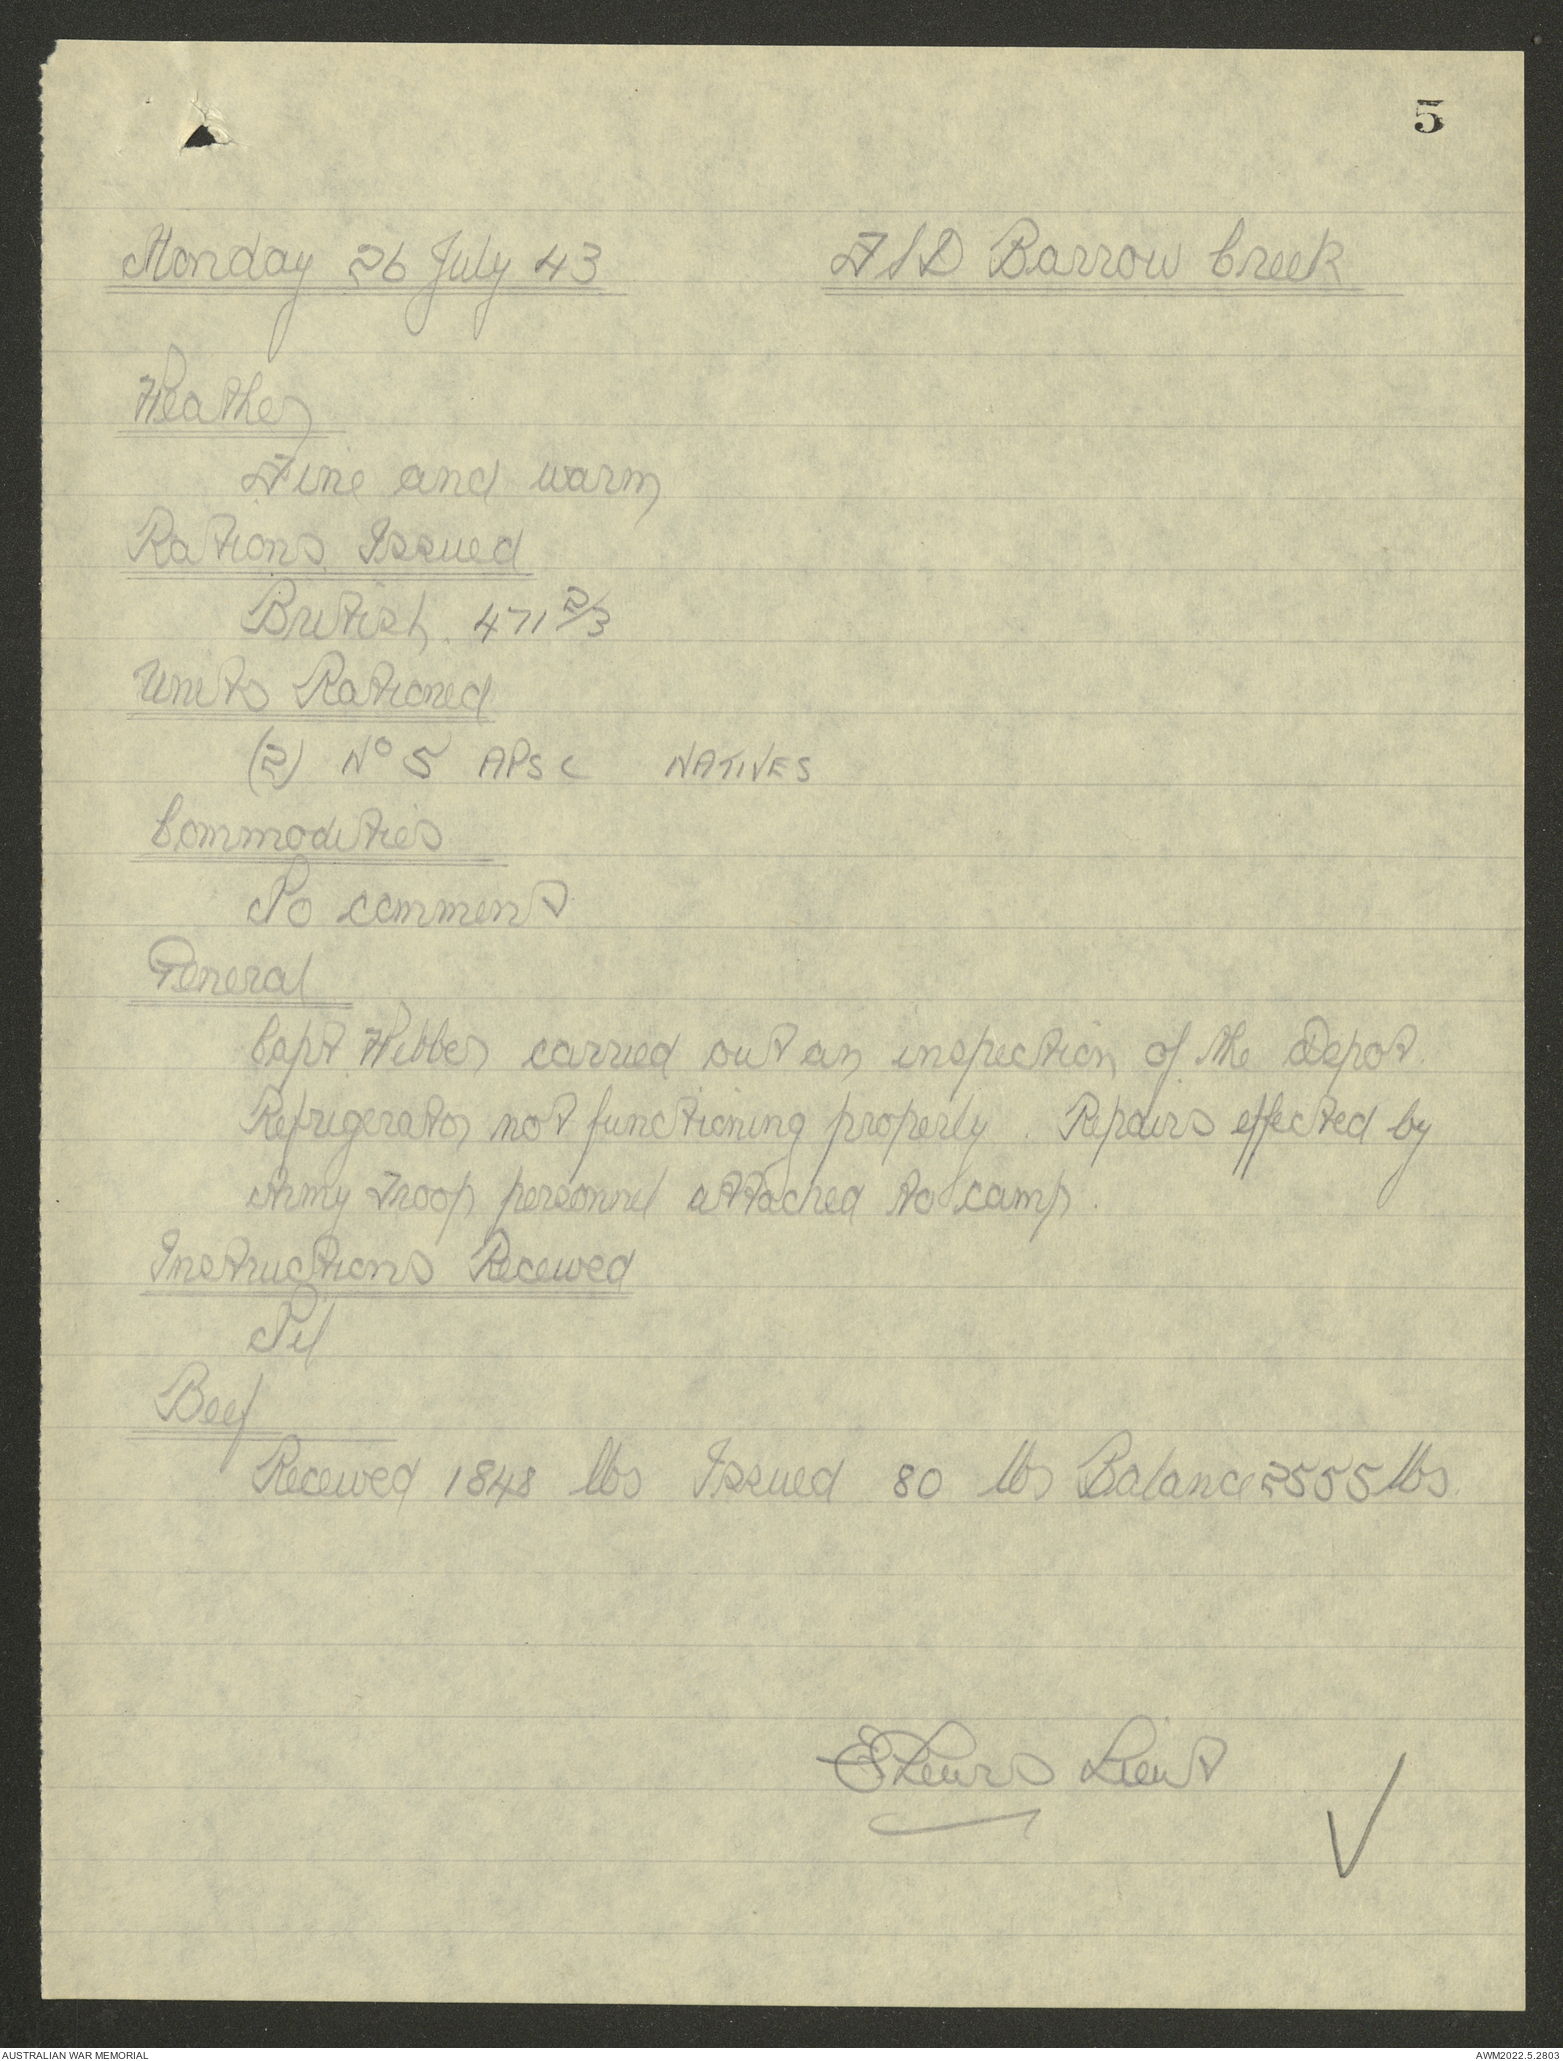 5
Monday 26 July 43 FSD Barrow Creek
Weather
Fine and warm
Rations Issued
British. 471 2/3
Units Rationed
(2) No 5 APSC NATIVES
Commodities
No comment
General
Capt Webber carried out an inspection of the Depot.
Refrigerator not functioning properly. Repairs effected by
Army Troop personnel attached to camp.
Instructions Received
Nil
Beef
Received 1848 lbs Issued 80 lbs Balance 2555 lbs.
Lieut
AUSTRALIAN WAR MEMORIAL AWM2022.5.2803